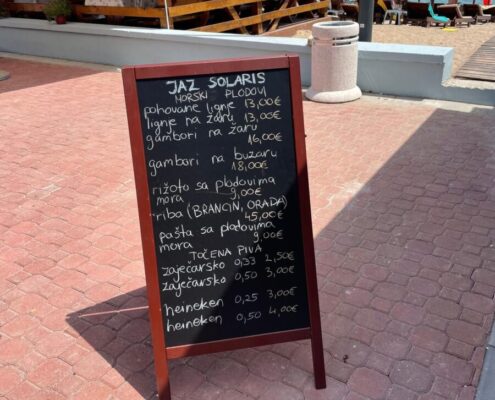 JAZ SOLARIS
MORSKI PLODOVI
pohovane lignje 13,00€
lignje na žaru 13,00€
gambori na žaru
16,00€
gambori na buzaru
18,00€
rižoto sa plodovima
mora 9,00€
riba (BRANCIN, ORADA)
45,00€
pašta sa plodovima
mora 9,00€
TOČENA PIVA
zaječarsko 0,33 2,50€
zaječarsko 0,50 3,00€
heineken 0,25 3,00€
heineken 0,50 4,00€